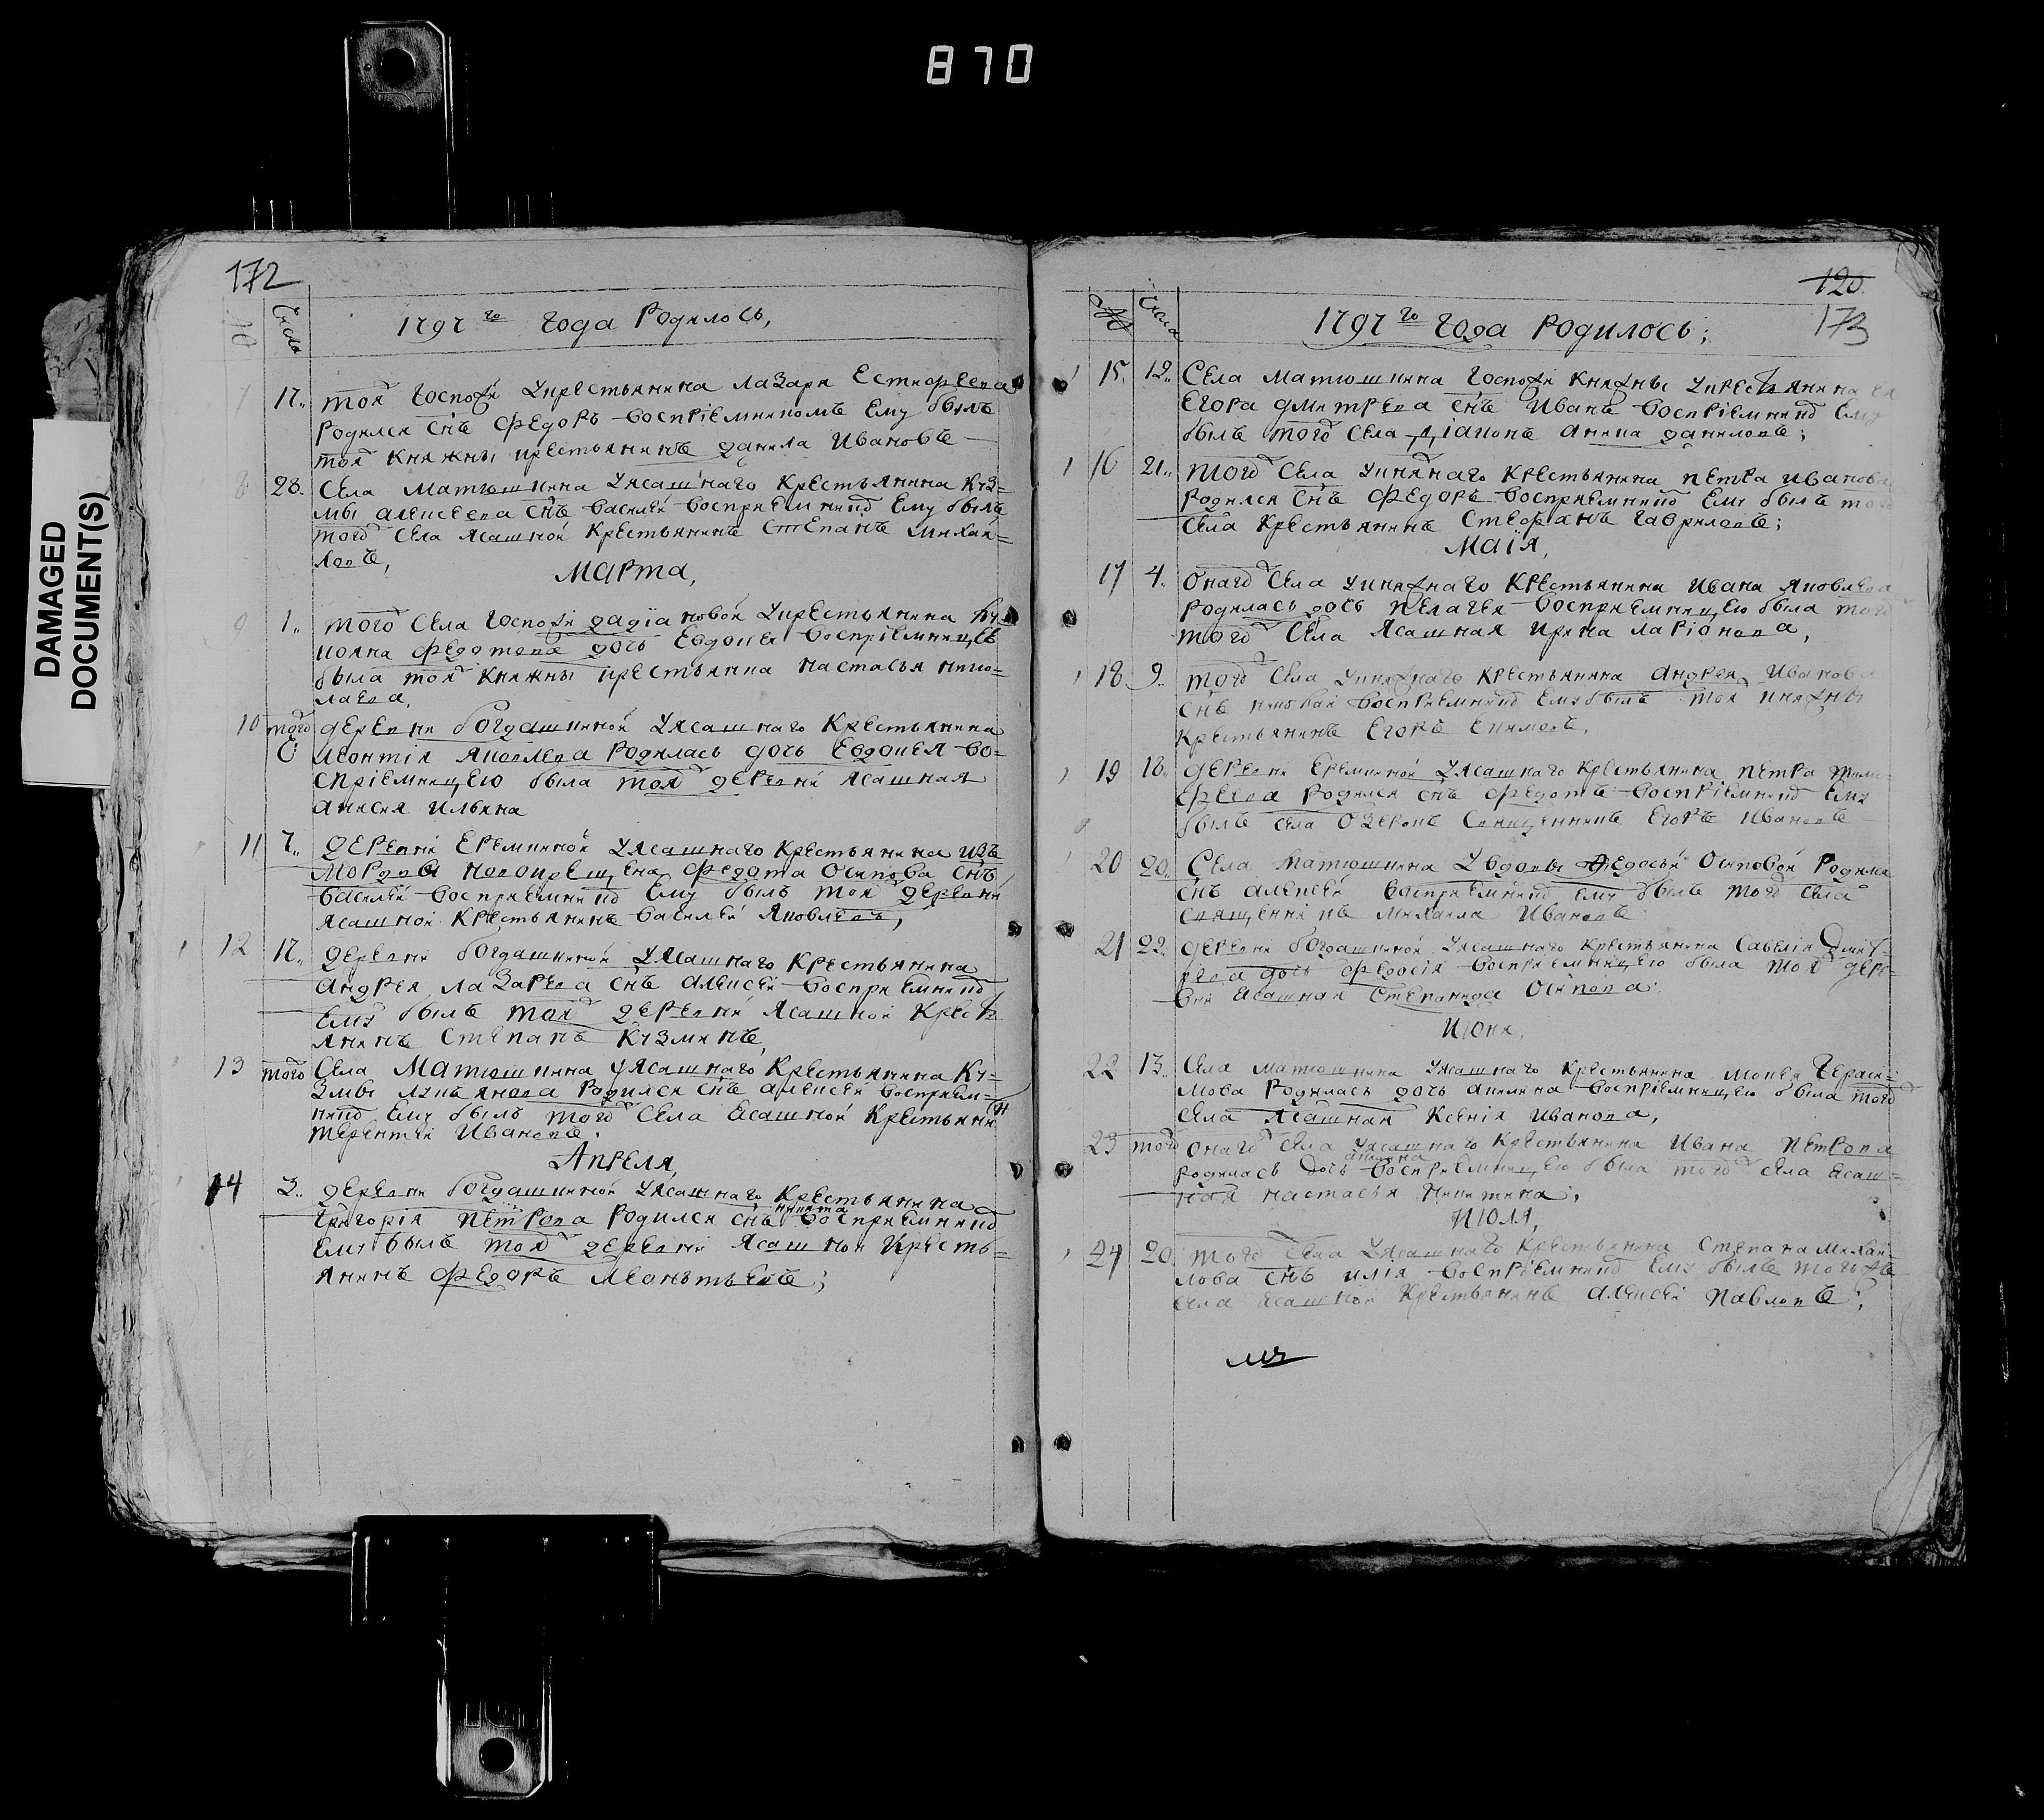 870
DAMAGED
DOCUMENT(S)
172
№
Числа
1797го года Родилось,
7 17.. тоя Госпожи укрестьянина лазаря Естифеева
родился снъ Федоръ воспріемникомъ Ему былъ
тоя Княжны крестьянинъ данила Ивановъ
8 28. Села Матюшкина уясашнаго крестьянина куз=
мы алексеева снъ василей восприемникъ Ему былъ
того Села Ясашной Крестьянинъ Степанъ михаи=
ловъ,
Марта,
9 1.. того Села Госпожи дадіановой укрестьянина
федотова дочь Евдокея воспріемницею
была тоя Княжны крестьянка настасья нико=
лаева,
10 того Деревни богдашкиной уясашнаго Крестьянина
леонтія Яковлева Родилась дочь Евдокея во=
спріемницею была тоя деревни ясашная
анисия ильина
11 7.. Деревни Еремкиной уясашнаго крестьянина изъ
Мордвы новокрещена федота Осипова снъ
василей восприемникъ Ему былъ тоя деревни
ясашной крестьянинъ василей Яковлевъ,
12 17.. Деревни богдашкиной уясашнаго Крестьянина
андрея лазарева снъ алексей восприемникъ
Ему былъ тоя деревни ясашной крестъ
янинъ Степанъ Кузминъ,
13 того Села Матюшкина уясашнаго Крестьянина Ку=
змы лукьянова Родился снъ алексей восприем=
никъ Ему былъ того Села Ясашной Крестьянин
терентей Ивановъ.
Апреля,
14 3.. Деревни богдашкиной уясашнаго Крестьянина
григорія Петрова Родился снъ никита восприемникъ
Ему былъ тоя деревни Ясашной Кресть=
янинъ Федоръ Леонтьевъ;
120.
173
№
Числа
1797го Года Родилось;
15. 12.. Села Матюшкина Госпожи Княжны укрестьянина
Егора дмитрева снъ Иванъ воспріемникъ Ему
былъ того Села діаконъ аника даниловъ;
16 21.. того Села укняжнаго Крестьянина петра иванова
Родился снъ Федоръ восприемникъ Ему былъ того
Села Крестьянинъ Стефанъ Гавриловъ;
Маія,
17 4.. онаго Села укняжнаго Крестьянина Ивана Яковлева
Родилась дочь пелагея восприемницею была того
того Села Ясашная Ирина ларіонова,
18 9.. того Села укняжнаго Крестьянина Андрея Иванова
снъ николай восприемникъ Ему былъ тоя княжны
Крестьянинъ Егоръ Екимовъ,
19 18. Деревни Еремкиной уясашнаго крестьянина петра тимо=
феева Родился снъ федотъ воспріемникъ Ему
былъ села Озерокъ Священникъ Егоръ Ивановъ
20 20.. Села матюшкина увдовы Федосьи Осиповой Родился
снъ алексей воспріемникъ Ему былъ того Села
священникъ михаила Ивановъ
21 22. Деревни богдашкиной уясашнаго крестьянина Савелія Дмит=
рева дочь Федосія воспріемницею была тоя дере=
вни Ясашная Степанида Осипова.
Июня,
22 13. Села матюшкина уясашнаго крестьянина Мокея Гераси=
мова Родилась дочь акилина воспріемницею была того
Села Ясашная Ксенія Иванова,
23 того онаго Села уясашнаго Крестьянина Ивана петрова
Родилась Дочь акилина восприемницею была того села Ясаш=
ная настасья Никитина;
Июля,
24 20. того Села уясашнаго крестьянина Степана михаи=
лова снъ илія воспріемникъ Ему былъ тогожъ
Села Ясашной Крестьянинъ алексей павловъ;